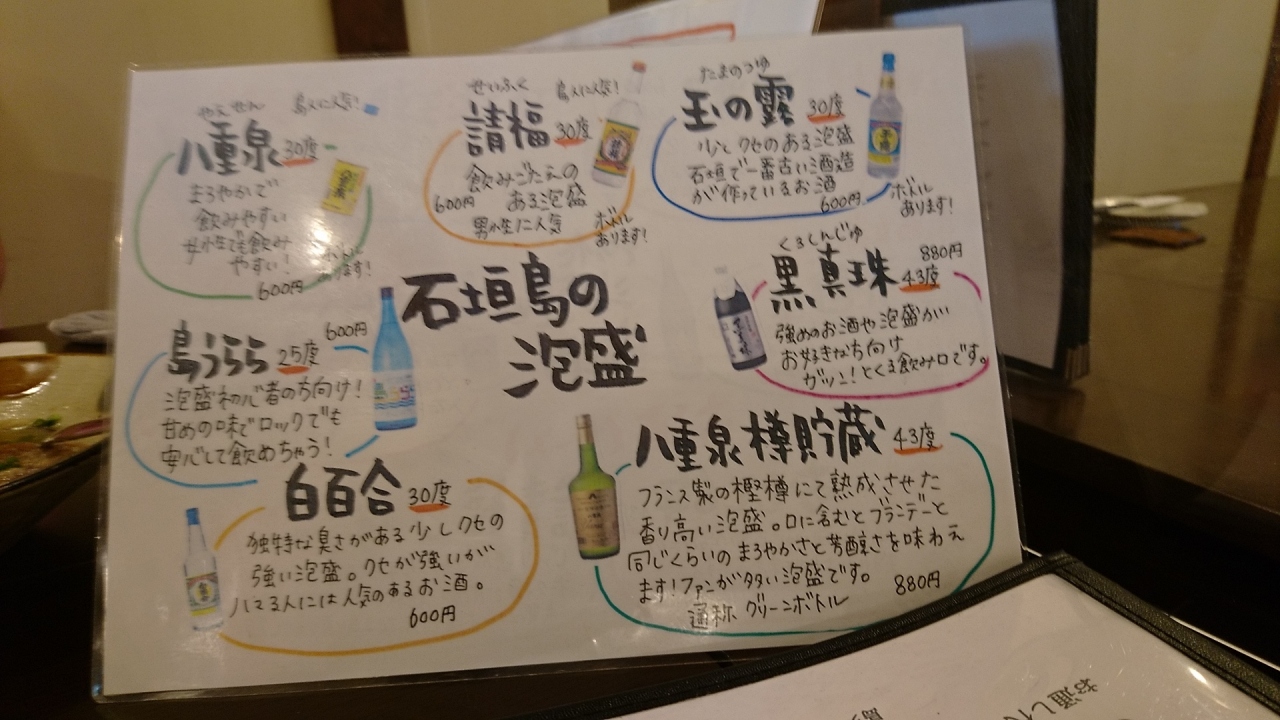 石垣島の
泡盛
やえせん
島人に人気!
八重泉 30度
まろやかで
飲みやすい
女性でも飲み
やすい!
ボトル
あります!
600円
せいふく
島人に人気!
請福 30度
飲みごたえの
ある泡盛
男性に人気
600円
ボトル
あります!
たまのつゆ
玉の露 30度
少しクセのある泡盛
石垣で一番古い酒造
が作っているお酒
600円
ボトル
あります!
島うらら 25度
600円
泡盛初心者の方向け!
甘めの味でロックでも
安心して飲めちゃう!
くろしんじゅ
黒真珠 43度
880円
強めのお酒や泡盛が
お好きな方向け
ガツン!とくる飲み口です。
白百合 30度
独特な臭さがある少しクセの
強い泡盛。クセが強いが
ハマる人には人気のあるお酒。
600円
八重泉樽貯蔵 43度
フランス製の樫樽にて熟成させた
香り高い泡盛。口に含むとブランデーと
同じくらいのまろやかさと芳醇さを味わえ
ます!ファンが多い泡盛です。
通称 グリーンボトル
880円
お通し